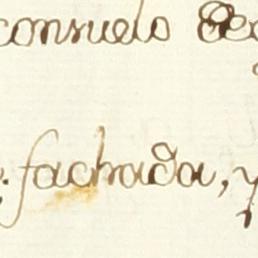 consuelo
fachada, y